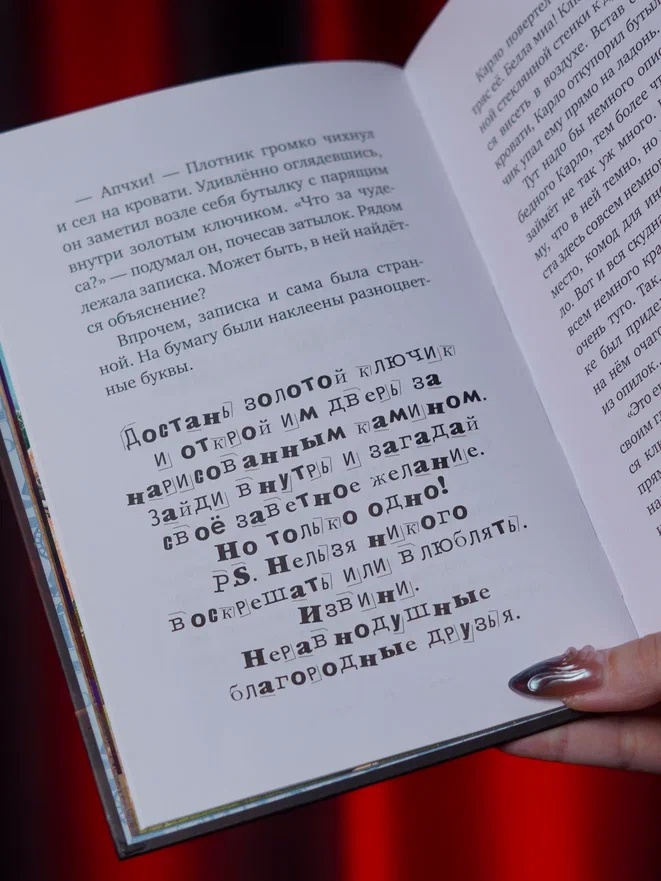 — Апчхи! — Плотник громко чихнул
и сел на кровати. Удивлённо оглядевшись,
он заметил возле себя бутылку с парящим
внутри золотым ключиком. «Что за чуде-
са?» — подумал он, почесав затылок. Рядом
лежала записка. Может быть, в ней найдёт-
ся объяснение?
Впрочем, записка и сама была стран-
ной. На бумагу были наклеены разноцвет-
ные буквы.
Достань золотой ключик
и открой им дверь за
нарисованным камином.
Зайди внутрь и загадай
своё заветное желание.
Но только одно!
PS. Нельзя никого
воскрешать или влюблять.
Извини.
Неравнодушные
благородные друзья.
Карло повертел
тряс её. Белла миа!
ной стеклянной стенки к
ся висеть в воздухе. Встав
кровати, Карло откупорил
чик упал ему прямо на ладонь.
Тут надо бы немного
бедного Карло, тем более
займёт не так уж много.
му, что в ней темно, но
ста здесь совсем
место, комод для
ло. Вот и вся
всем немного
очень туго.
ке был
на нём
из опилок.
«Это
своим
ся